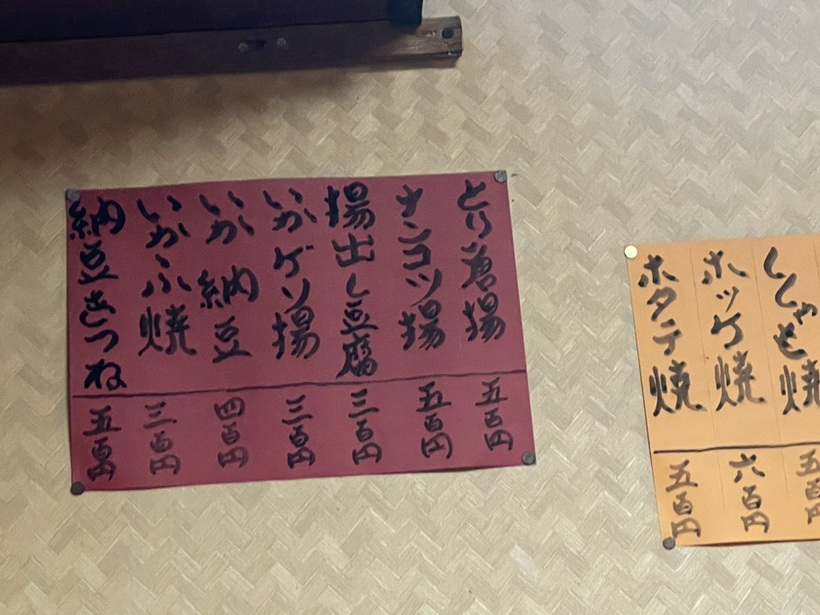 とり唐揚 五百円
ナンコツ揚 五百円
揚出し豆腐 三百円
いかゲソ揚 三百円
いか納豆 四百円
いかふ焼 三百円
納豆きつね 五百円
ししゃも焼 五百円
ホッケ焼 六百円
ホタテ焼 五百円